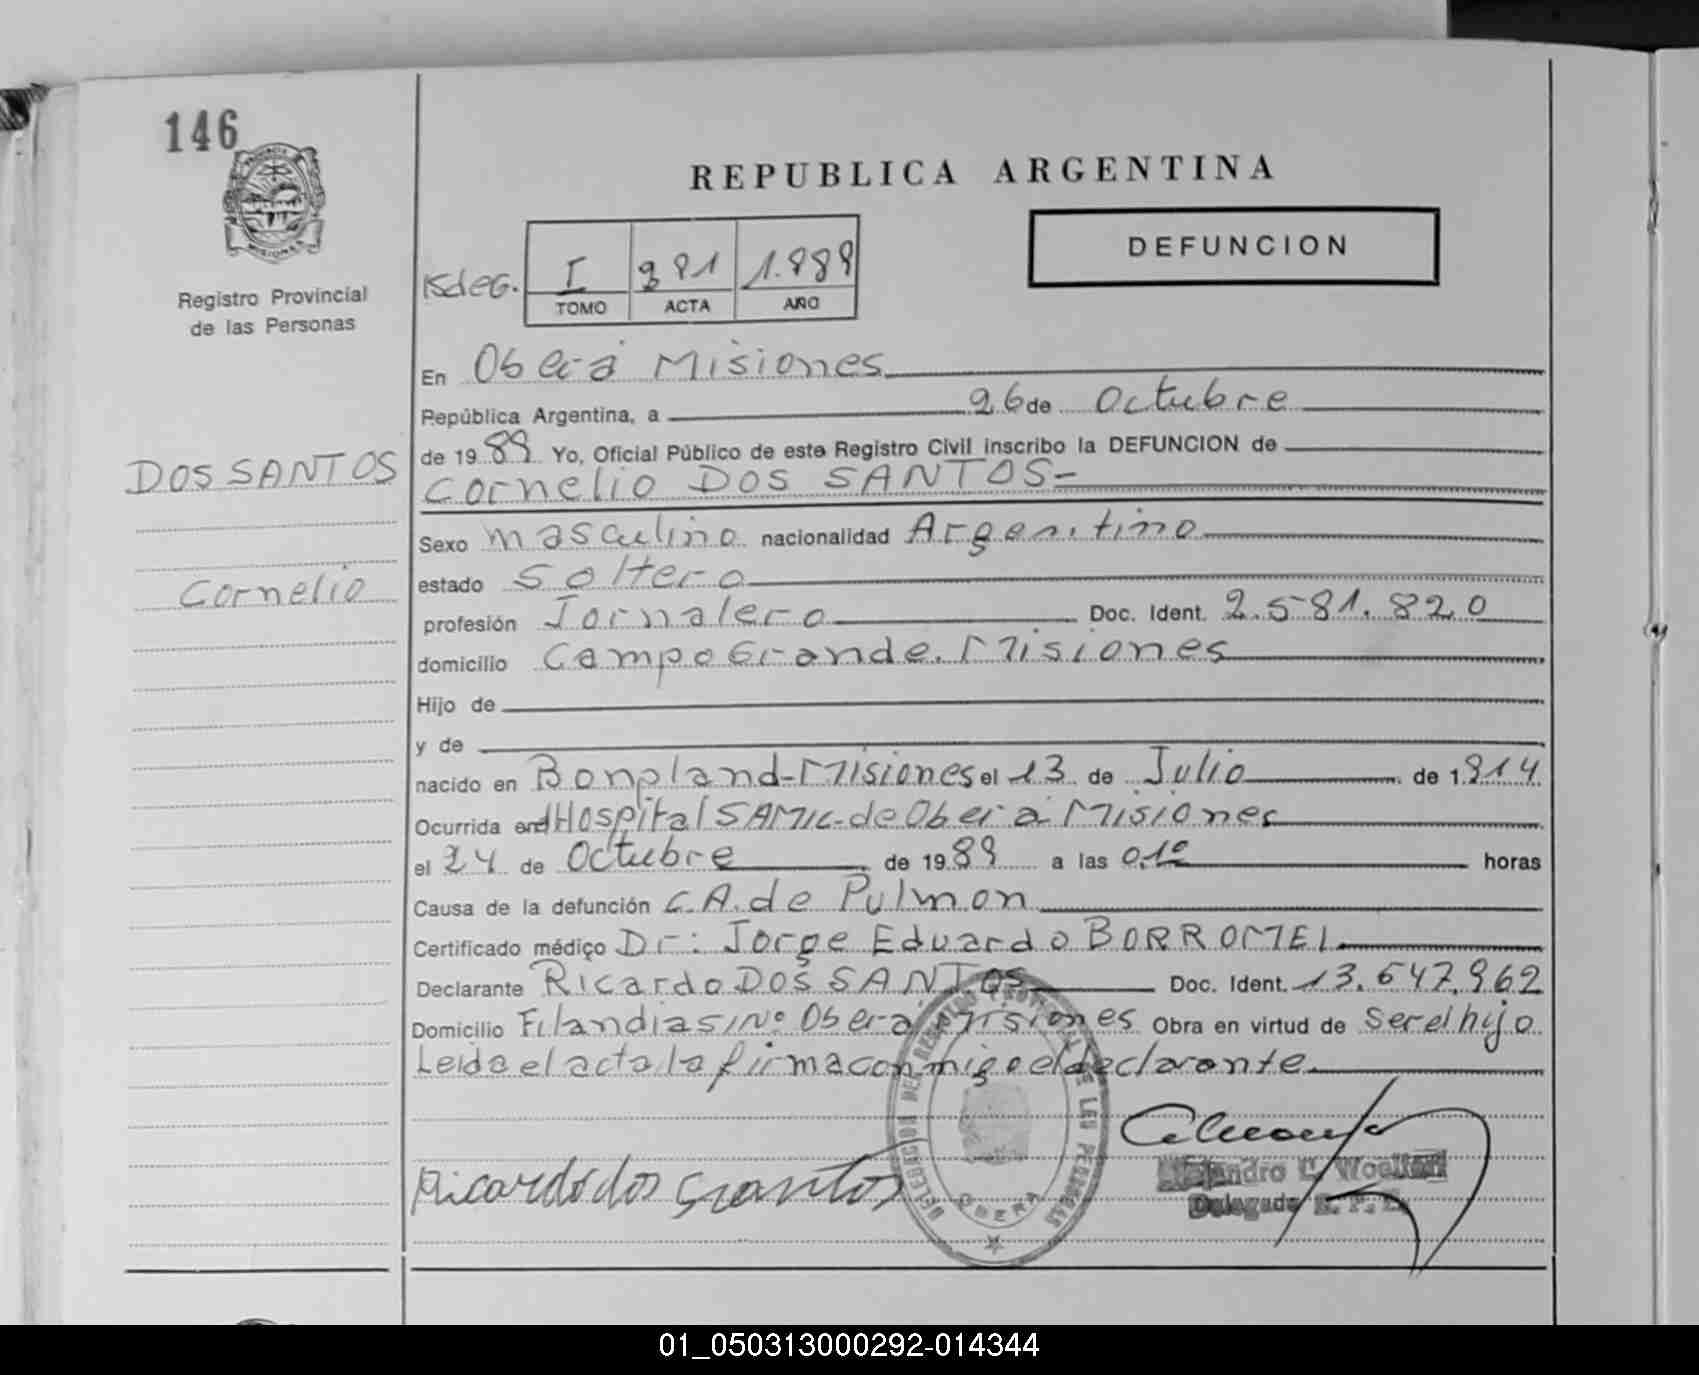 146
PROVINCIA
MISIONES
Registro Provincial
de las Personas
REPUBLICA ARGENTINA
DEFUNCION
I 1.989
TOMO ACTA AÑO
En Oberá Misiones
República Argentina, a 26 de Octubre
de 1989 Yo, Oficial Público de este Registro Civil inscribo la DEFUNCION de
DOS SANTOS
Cornelio DOS SANTOS=
Sexo masculino nacionalidad Argentino
Cornelio
estado Soltero
profesión Jornalero Doc. Ident. 2.581.820
domicilio Campo Grande. Misiones
Hijo de
y de
nacido en Bonpland-Misiones el 13 de Julio de 1914
Ocurrida en Hospital SAMIC-de Oberá Misiones
el 24 de Octubre de 1989 a las horas
Causa de la defunción C.A. de Pulmon
Certificado médico Dr: Jorge Eduardo BORROMEI
Declarante Ricardo DOS SANTOS Doc. Ident. 13.647.962
Domicilio Filandia S/Nº Oberá Misiones Obra en virtud de Ser el hijo
Leida el acta la firma conmigo el declarante
Ricardo dos Santos
DELEGACION DEL REGISTRO PROVINCIAL DE LAS PERSONAS
OBERA
Alejandro
Delegado R. P. P.
01_050313000292-014344